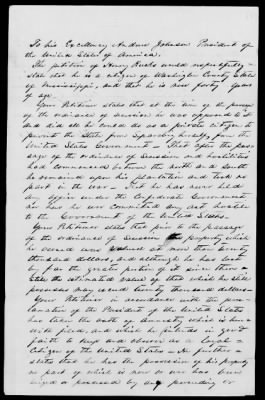 To his Excellency Andrew Johnson President of
the United States of America.
The petition of Henry Rucks would respectfully
state that he is a citizen of Washington County State
of Mississippi, and that he is now forty years
of age
Your Petitioner states that at the time of the passage
of the ordinance of Secession he was opposed to it
and did all he could do as a private citizen to
prevent the State from separating herself from the
United States Government — That after the pas-
sage of the ordinance of Secession and hostilities
had commenced between the north and South
he remained upon his plantation and took no
part in the war — That he has never held
any office under the Confederate Government
nor has he ever committed any act hostile
to the Government of the United States.
Your Petitioner states that prior to the passage
of the ordinance of Secession the property
he owned was valued at more than twenty
thousand dollars, and although he has lost
by far the greater portion of it since then
the estimated value of that which he still
possesses may exceed twenty thousand dollars —
Your Petitioner in accordance with the proc-
lamation of the President of the United States
has taken the oath of Amnesty which is here
with filed, and which he intends in good
faith to keep and observe as a loyal
Citizen of the United States — He further
states that he has the possession of his property
no part of which is now or ever has been
seized or possessed by any proceeding or